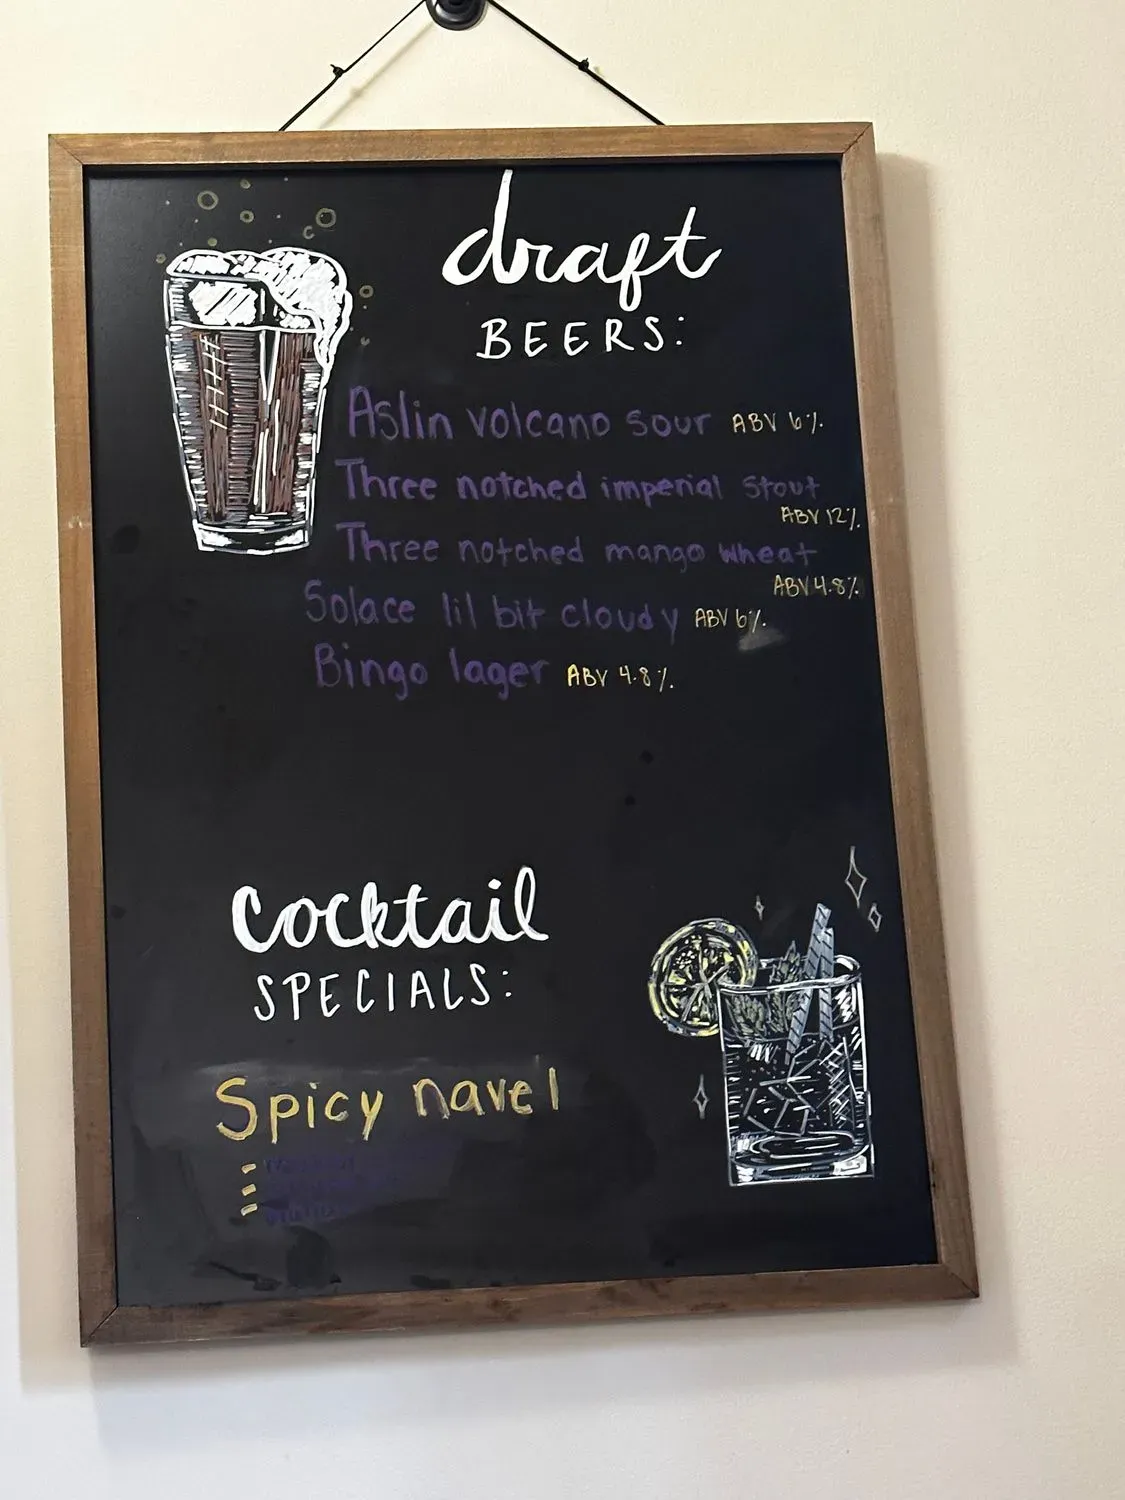 draft
BEERS:
Aslin volcano sour ABV 6%
Three notched imperial Stout
ABV 12%
Three notched mango wheat
ABV 4.8%
Solace lil bit cloudy ABV 6%
Bingo lager ABV 4.8%
Cocktail
SPECIALS:
Spicy navel